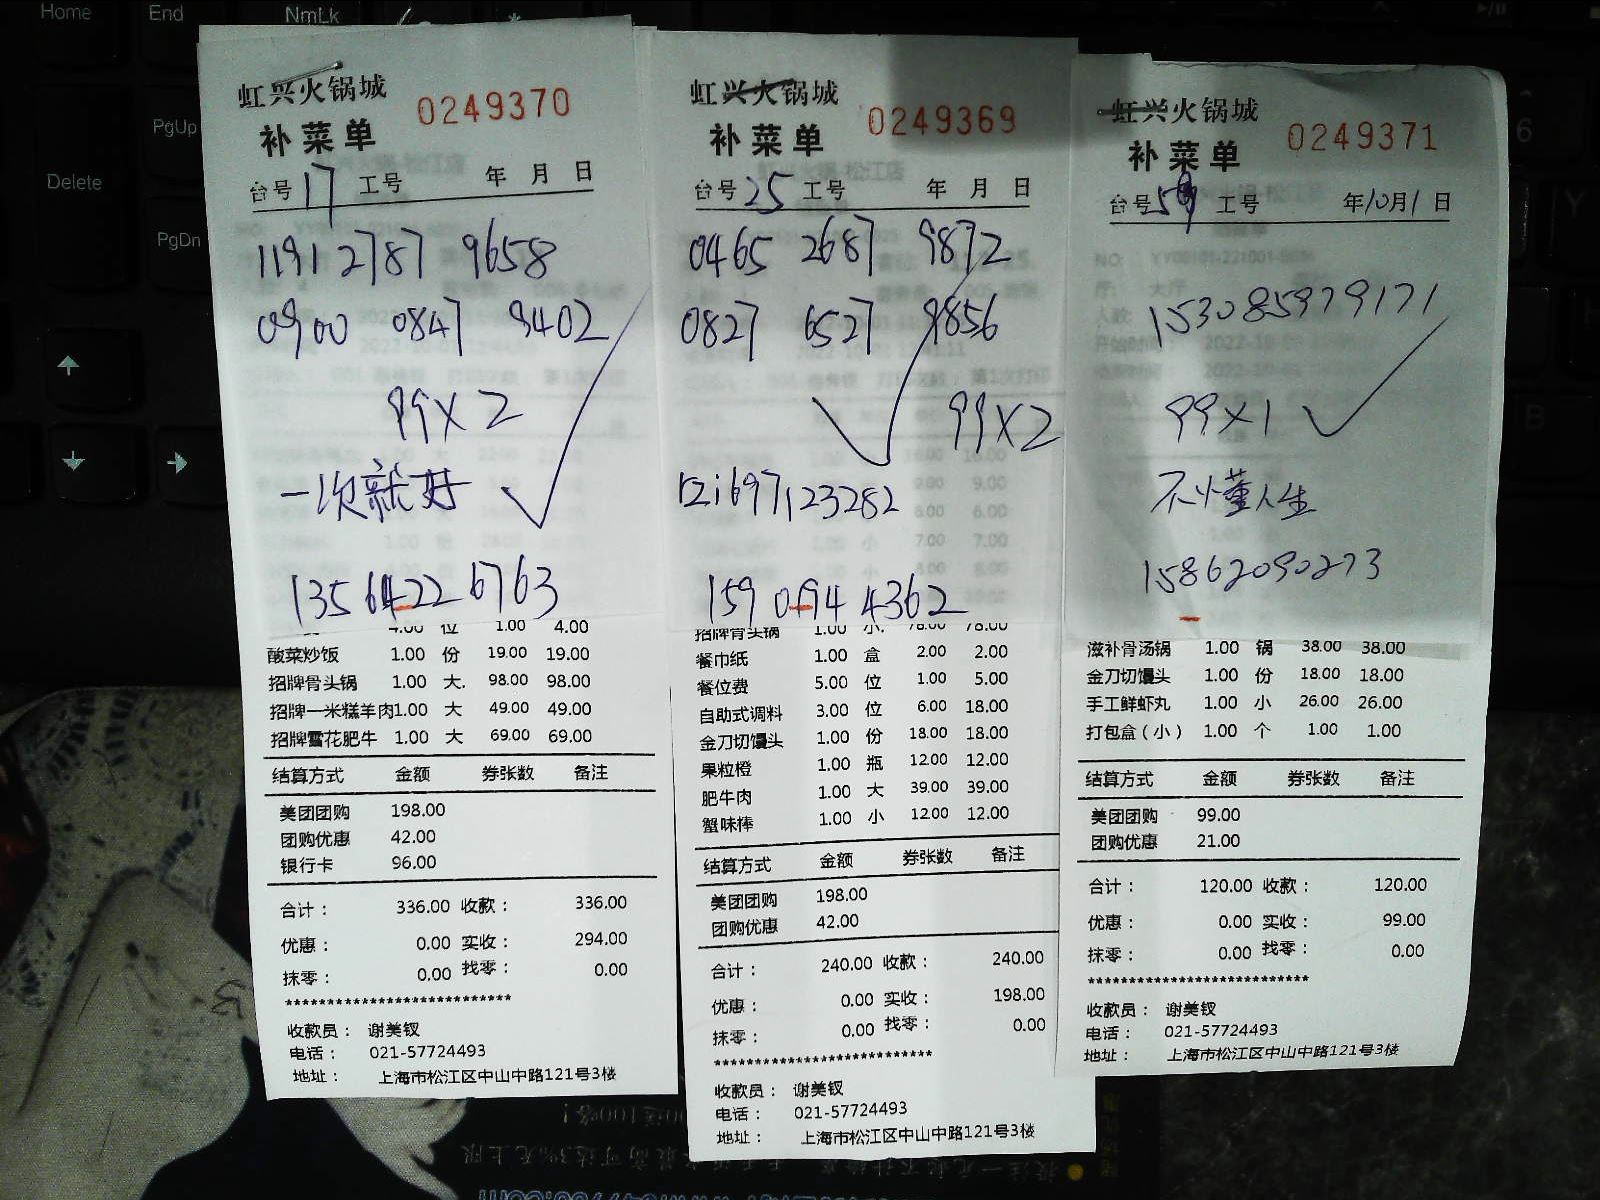 Home
End
NmLk
PgUp
Delete
PgDn
虹兴火锅城
0249370
补菜单
台号 17 工号 年 月 日
11912787 9658
0900 0847 9402
99×2
一次就好
13564226763
4.00 位 1.00 4.00
酸菜炒饭 1.00 份 19.00 19.00
招牌骨头锅 1.00 大. 98.00 98.00
招牌一米糕羊肉1.00 大 49.00 49.00
招牌雪花肥牛 1.00 大 69.00 69.00
结算方式 金额 券张数 备注
美团团购 198.00
团购优惠 42.00
银行卡 96.00
合计： 336.00 收款： 336.00
优惠： 0.00 实收： 294.00
抹零： 0.00 找零： 0.00
***************************
收款员： 谢美钗
电话： 021-57724493
地址： 上海市松江区中山中路121号3楼
虹兴火锅城
0249369
补菜单
台号 25 工号 年 月 日
0465 2687 9872
0827 6527 9856
99×2
697123282
159 0494 4362
招牌骨头锅 1.00 小. 78.00 78.00
餐巾纸 1.00 盒 2.00 2.00
餐位费 5.00 位 1.00 5.00
自助式调料 3.00 位 6.00 18.00
金刀切馒头 1.00 份 18.00 18.00
果粒橙 1.00 瓶 12.00 12.00
肥牛肉 1.00 大 39.00 39.00
蟹味棒 1.00 小 12.00 12.00
结算方式 金额 券张数 备注
美团团购 198.00
团购优惠 42.00
合计： 240.00 收款： 240.00
优惠： 0.00 实收： 198.00
抹零： 0.00 找零： 0.00
***************************
收款员： 谢美钗
电话： 021-57724493
地址： 上海市松江区中山中路121号3楼
虹兴火锅城
0249371
补菜单
台号 工号 年10月1日
153085979171
99×1
不懂人生
15862090273
滋补骨汤锅 1.00 锅 38.00 38.00
金刀切馒头 1.00 份 18.00 18.00
手工鲜虾丸 1.00 小 26.00 26.00
打包盒（小） 1.00 个 1.00 1.00
结算方式 金额 券张数 备注
美团团购 99.00
团购优惠 21.00
合计： 120.00 收款： 120.00
优惠： 0.00 实收： 99.00
抹零： 0.00 找零： 0.00
***************************
收款员： 谢美钗
电话： 021-57724493
地址： 上海市松江区中山中路121号3楼